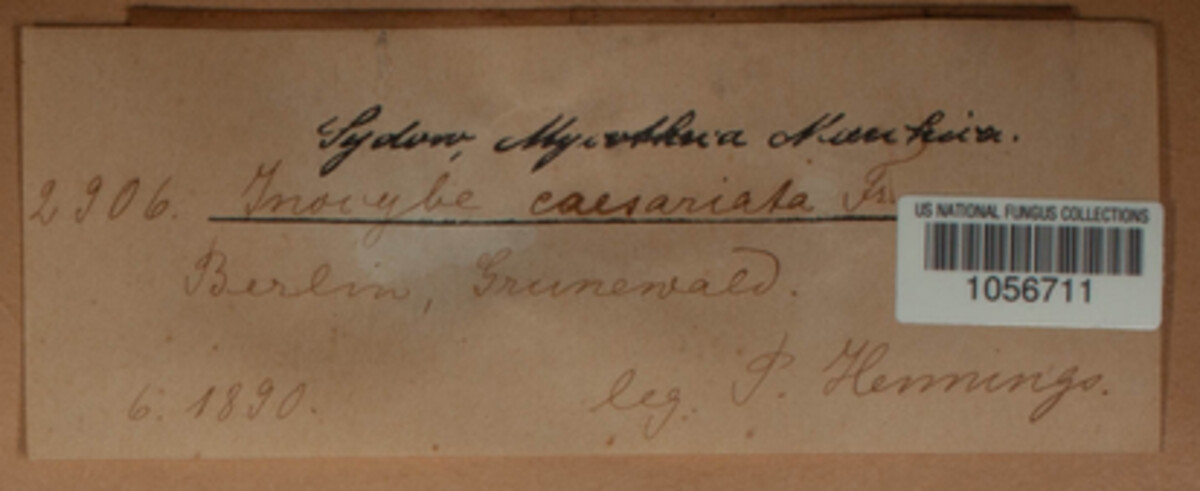 Sydow, Mycotheca Marchica.
2906. Inocybe caesariata Fr.
US NATIONAL FUNGUS COLLECTIONS
1056711
Berlin, Grunewald.
6. 1890. leg. P. Hennings.